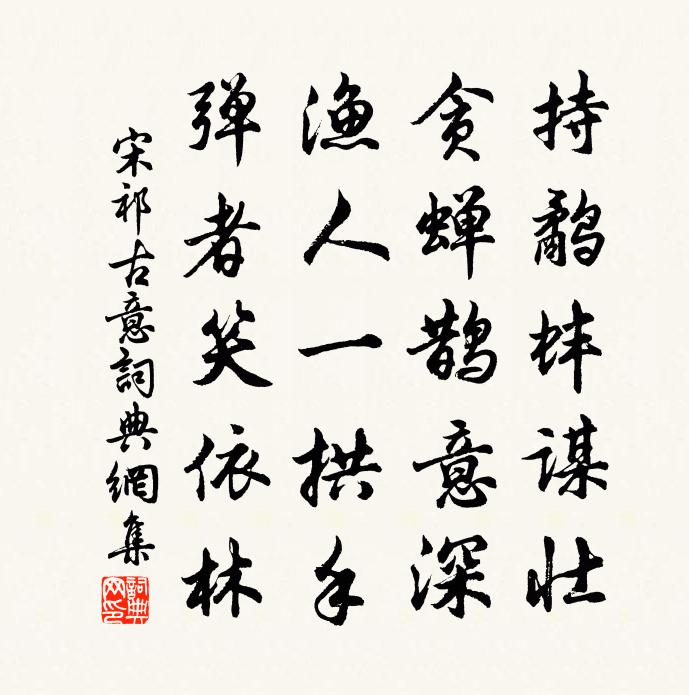 持鹬蚌谋壮
贪蝉鹊意深
渔人一拱手
弹者笑依林
宋祁古意詞典網集
詞典網印